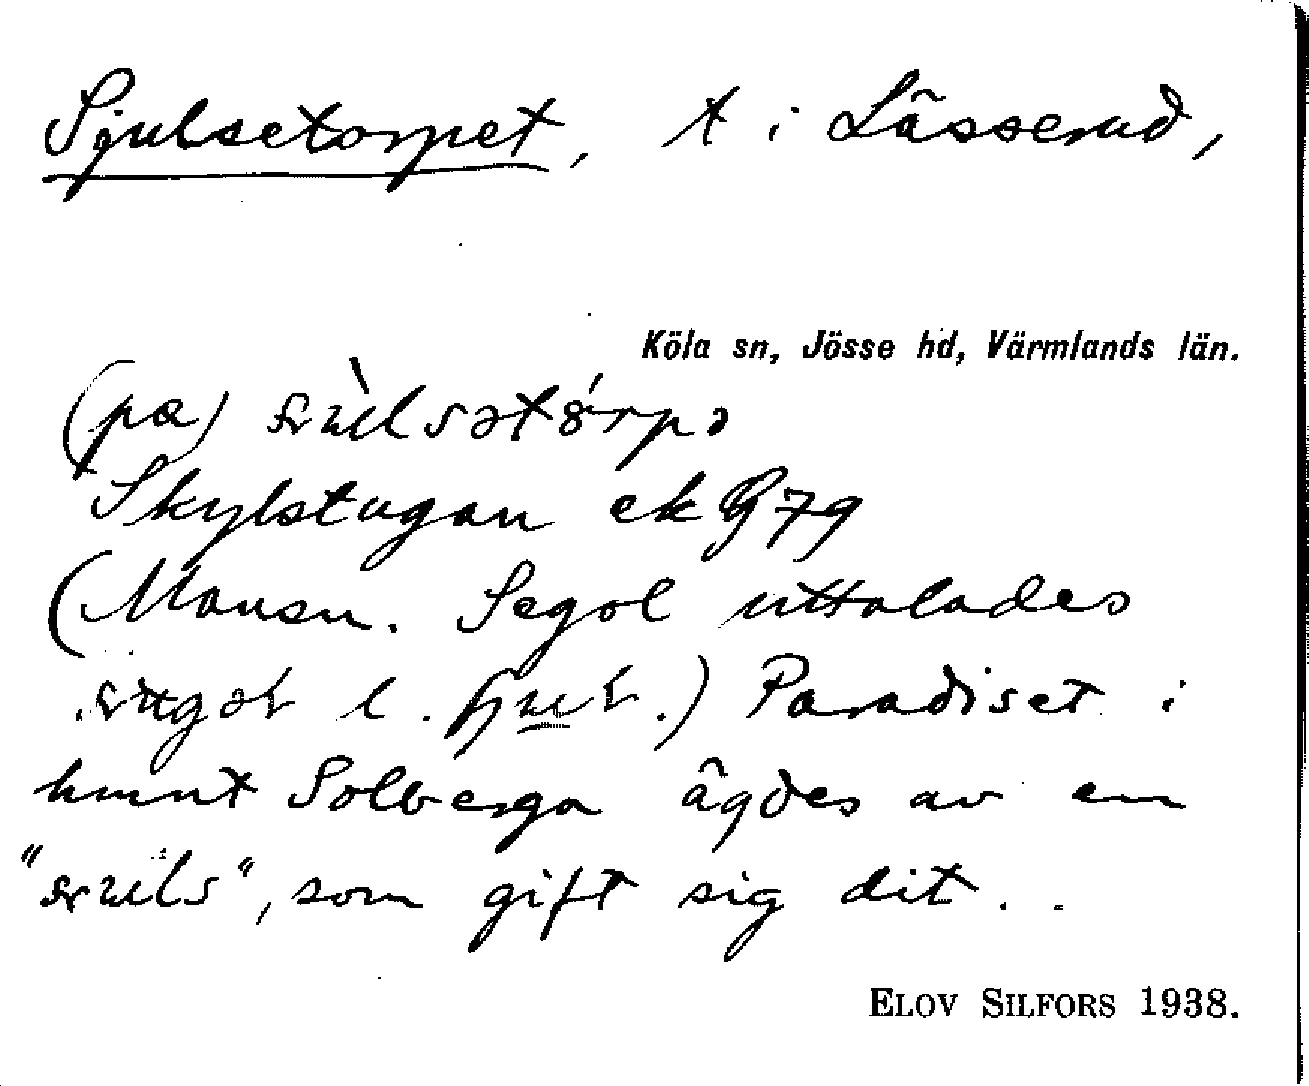 Sjulsetorpet, t i Lässerud,
Köla sn, Jösse hd, Värmlands län.
(pa)
Skylstugan ek G 79
(Mansn. Segol uttalades
l. .) Paradiset i
hmnt Solberga ägdes av en
som gift sig dit..
ELOV SILFORS 1938.